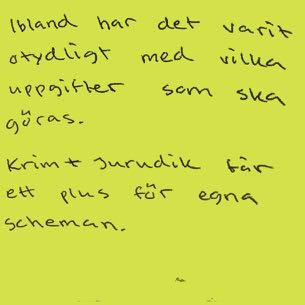 Ibland har det varit
otydligt med vilka
uppgifter som ska
göras.
Krim + Jurudik får
ett plus för egna
scheman.